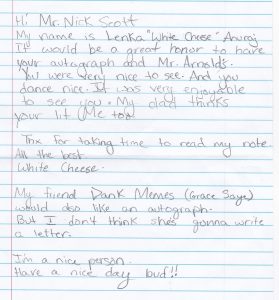 Hi Mr. Nick Scott
My name is Lenka "White Cheese" Anuraj
It would be a great honor to have
your autograph and Mr. Arnolds.
You were very nice to see. And you
dance nice. It was very enjoyable
to see you. My dad thinks
your lit (Me too
Thx for taking time to read my note.
All the best
White Cheese.
My friend Dank Memes (Grace Saye)
would also like an autograph.
But I don't think she's gonna write
a letter.
I'm a nice person.
Have a nice day bud!!